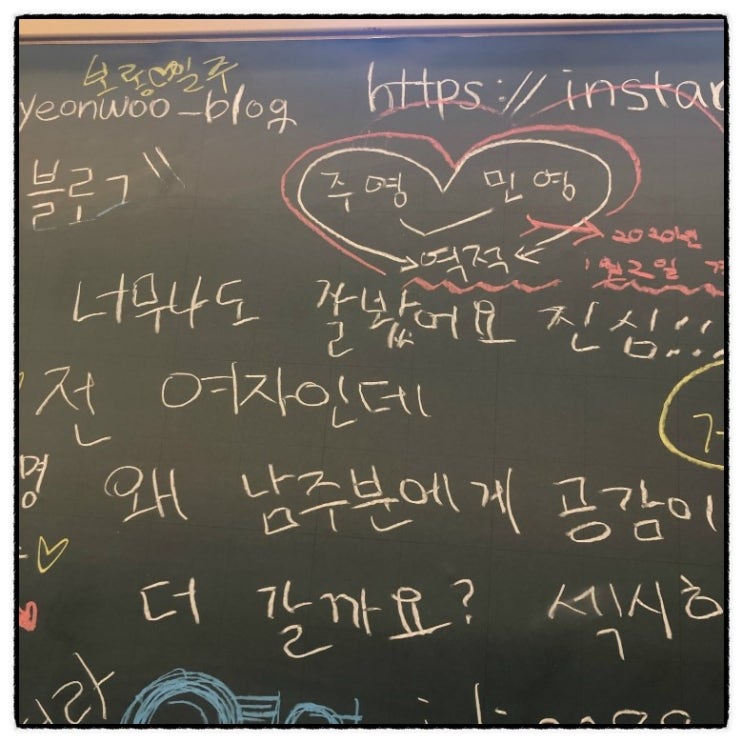 보랑♡일주
yeonwoo_blog
https://instar
블로그
주영 민영
역적
2020년
1월 2일
너무나도 잘봤어요 진심!!!
전 여자인데
왜 남주분에게 공감이
더 갈까요? 섹시하
명
거